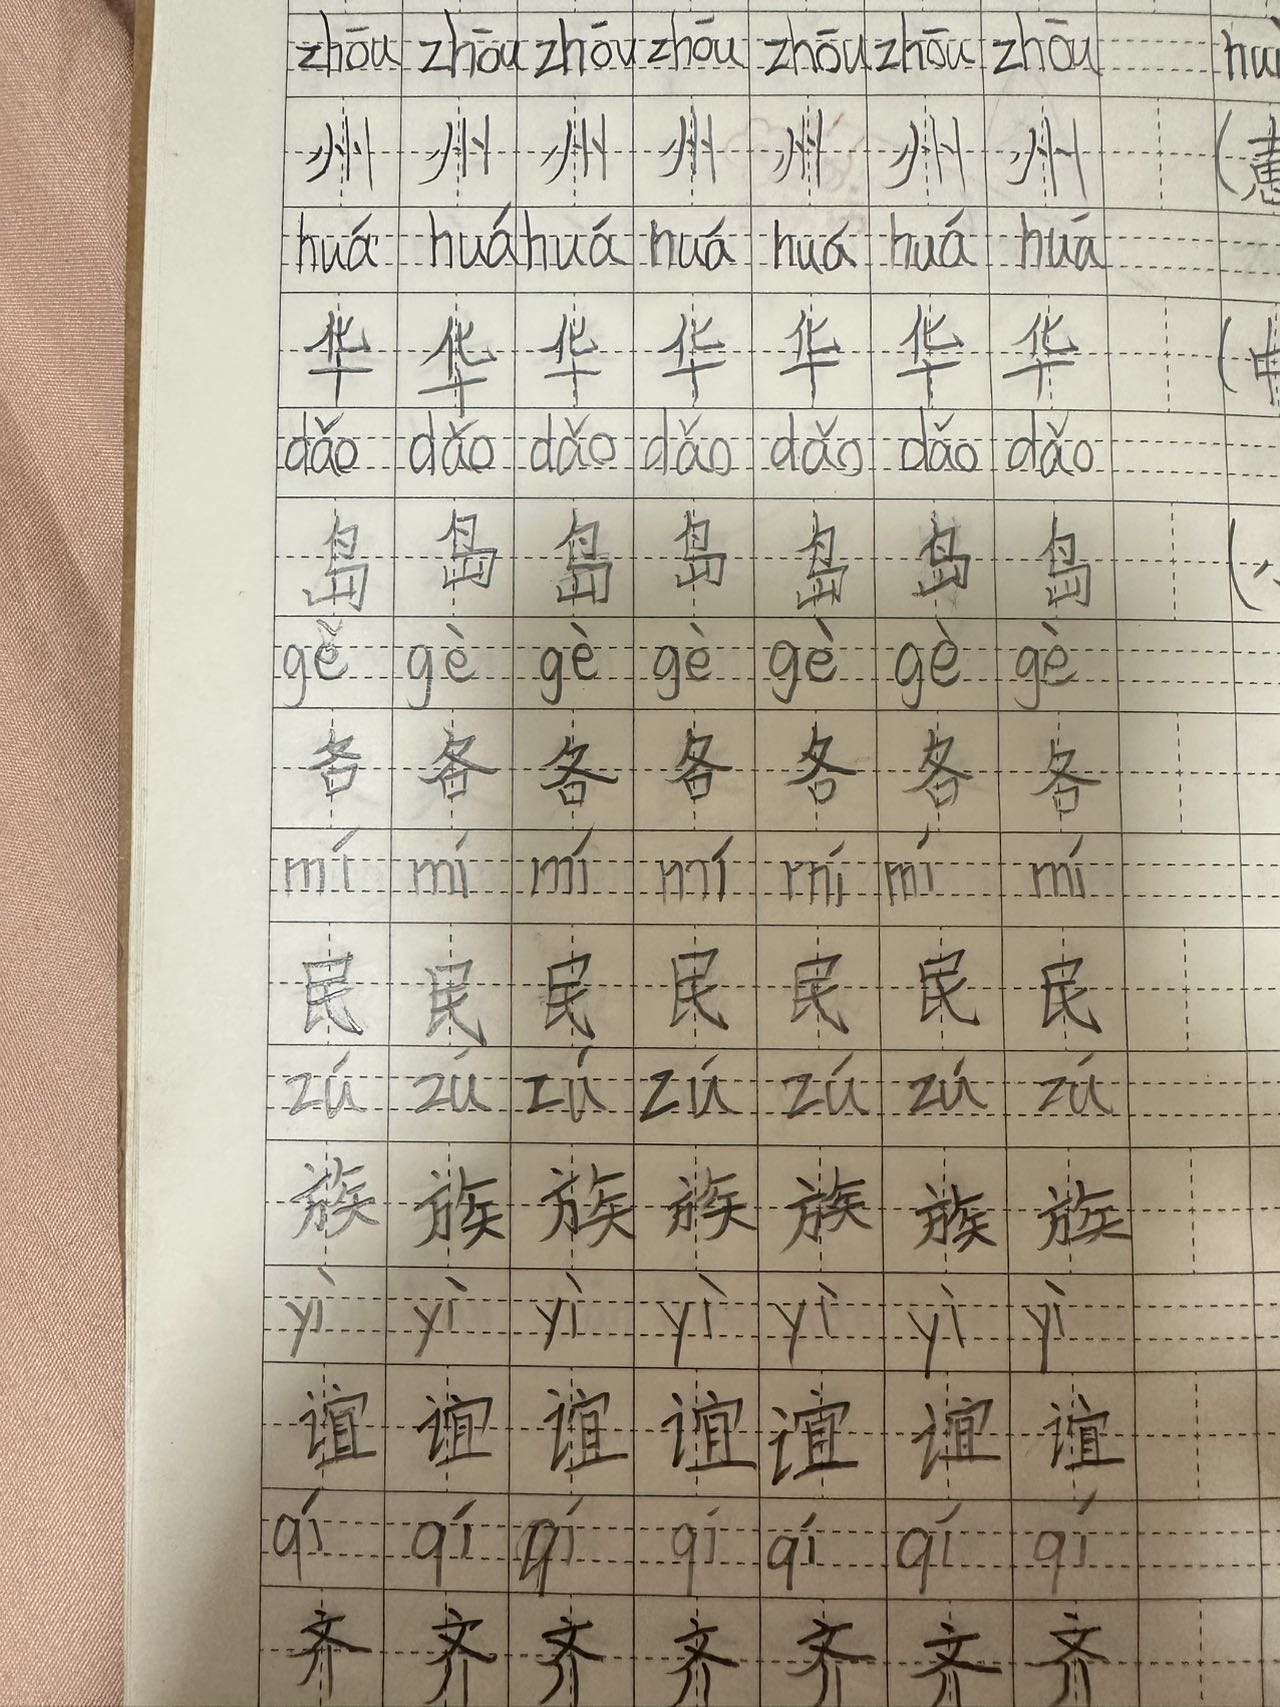 zhōu zhōu zhōu zhōu zhōu zhōu zhōu
州 州 州 州 州 州 州
huá huá huá huá huá huá huá
华 华 华 华 华 华 华
dǎo dǎo dǎo dǎo dǎo dǎo dǎo
岛 岛 岛 岛 岛 岛 岛
gě gè gè gè gè gè gè
各 各 各 各 各 各 各
mí mí mí mí mí mí mí
民 民 民 民 民 民 民
zú zú zú zú zú zú zú
族 族 族 族 族 族 族
yì yì yì yì yì yì yì
谊 谊 谊 谊 谊 谊 谊
qí qí qí qí qí qí qí
齐 齐 齐 齐 齐 齐 齐